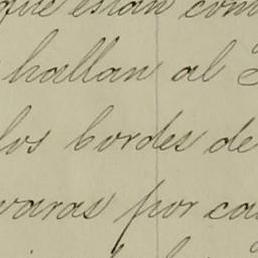 que están com
hallan al
los bordes de
varas por ca